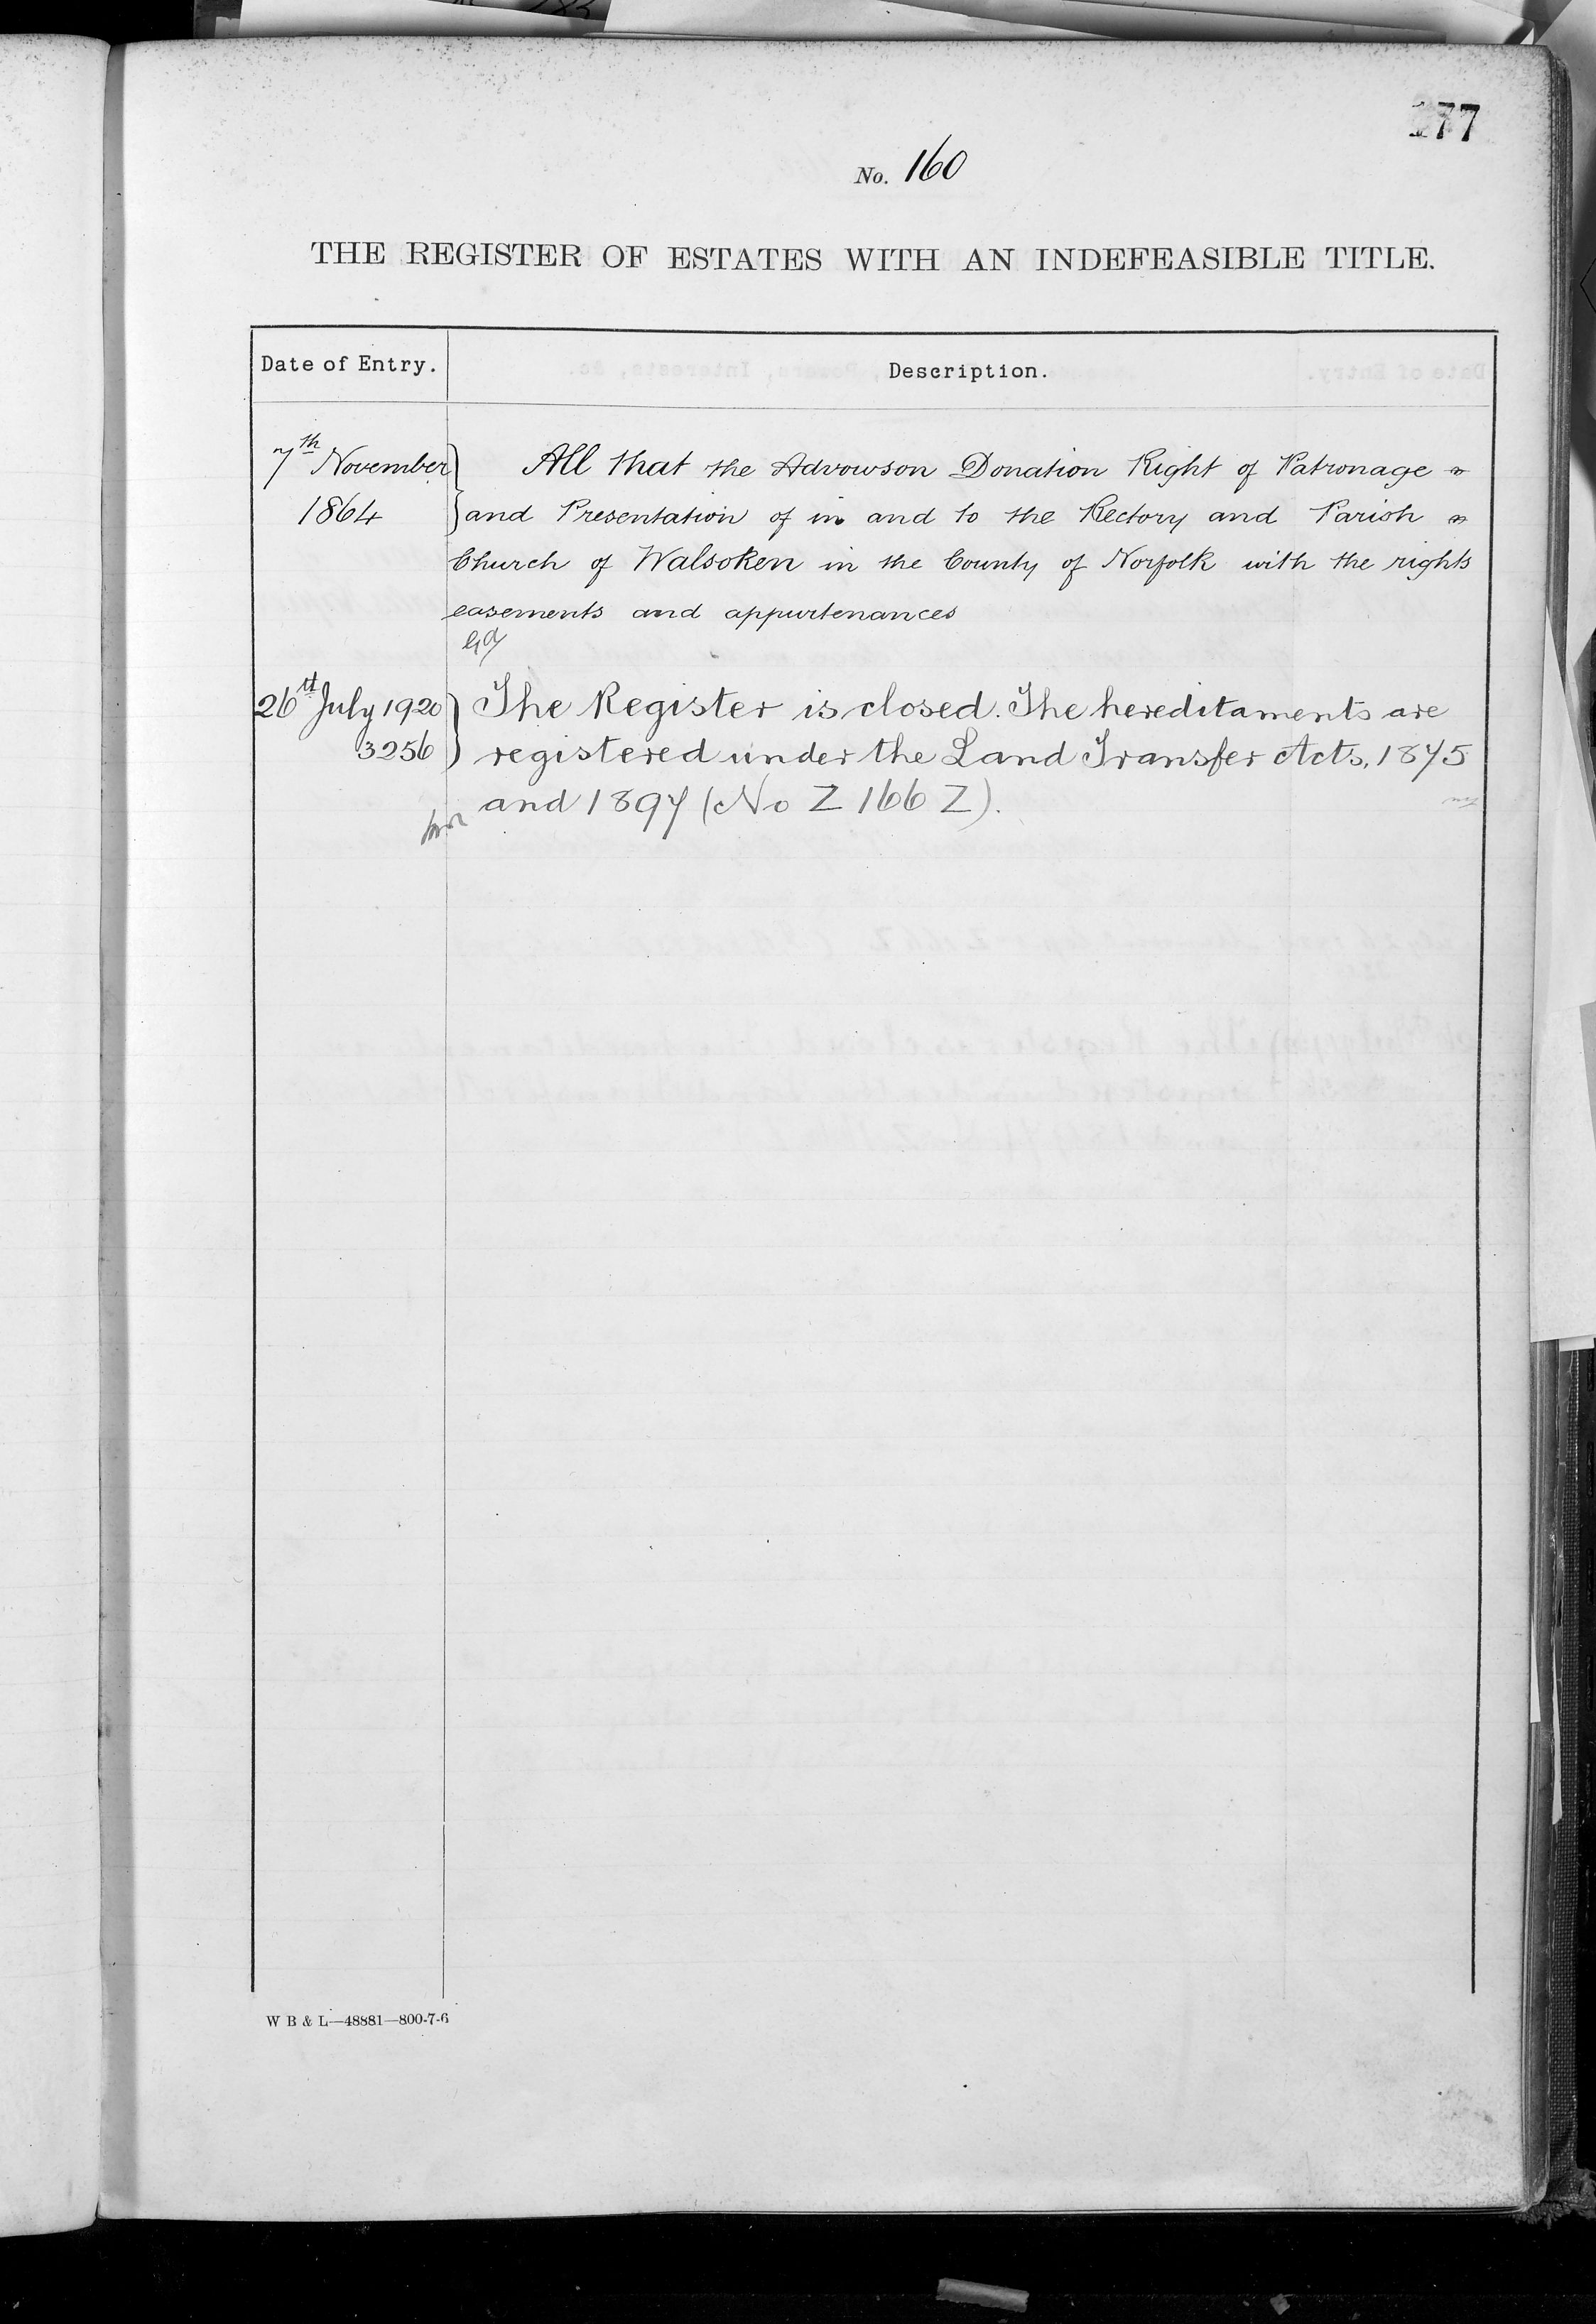 177
No. 160
THE REGISTER OF ESTATES WITH AN INDEFEASIBLE TITLE.
Date of Entry. Description.
7th November All that the Advowson Donation Right of Patronage
1864 and Presentation of in and to the Rectory and Parish
Church of Walsoken in the County of Norfolk with the rights
easements and appurtenances
26th July 1920 The Register is closed. The hereditaments are
3256 registered under the Land Transfer Acts, 1875
and 1897 (No Z 166 Z).
W B & L—48881—800-7-6